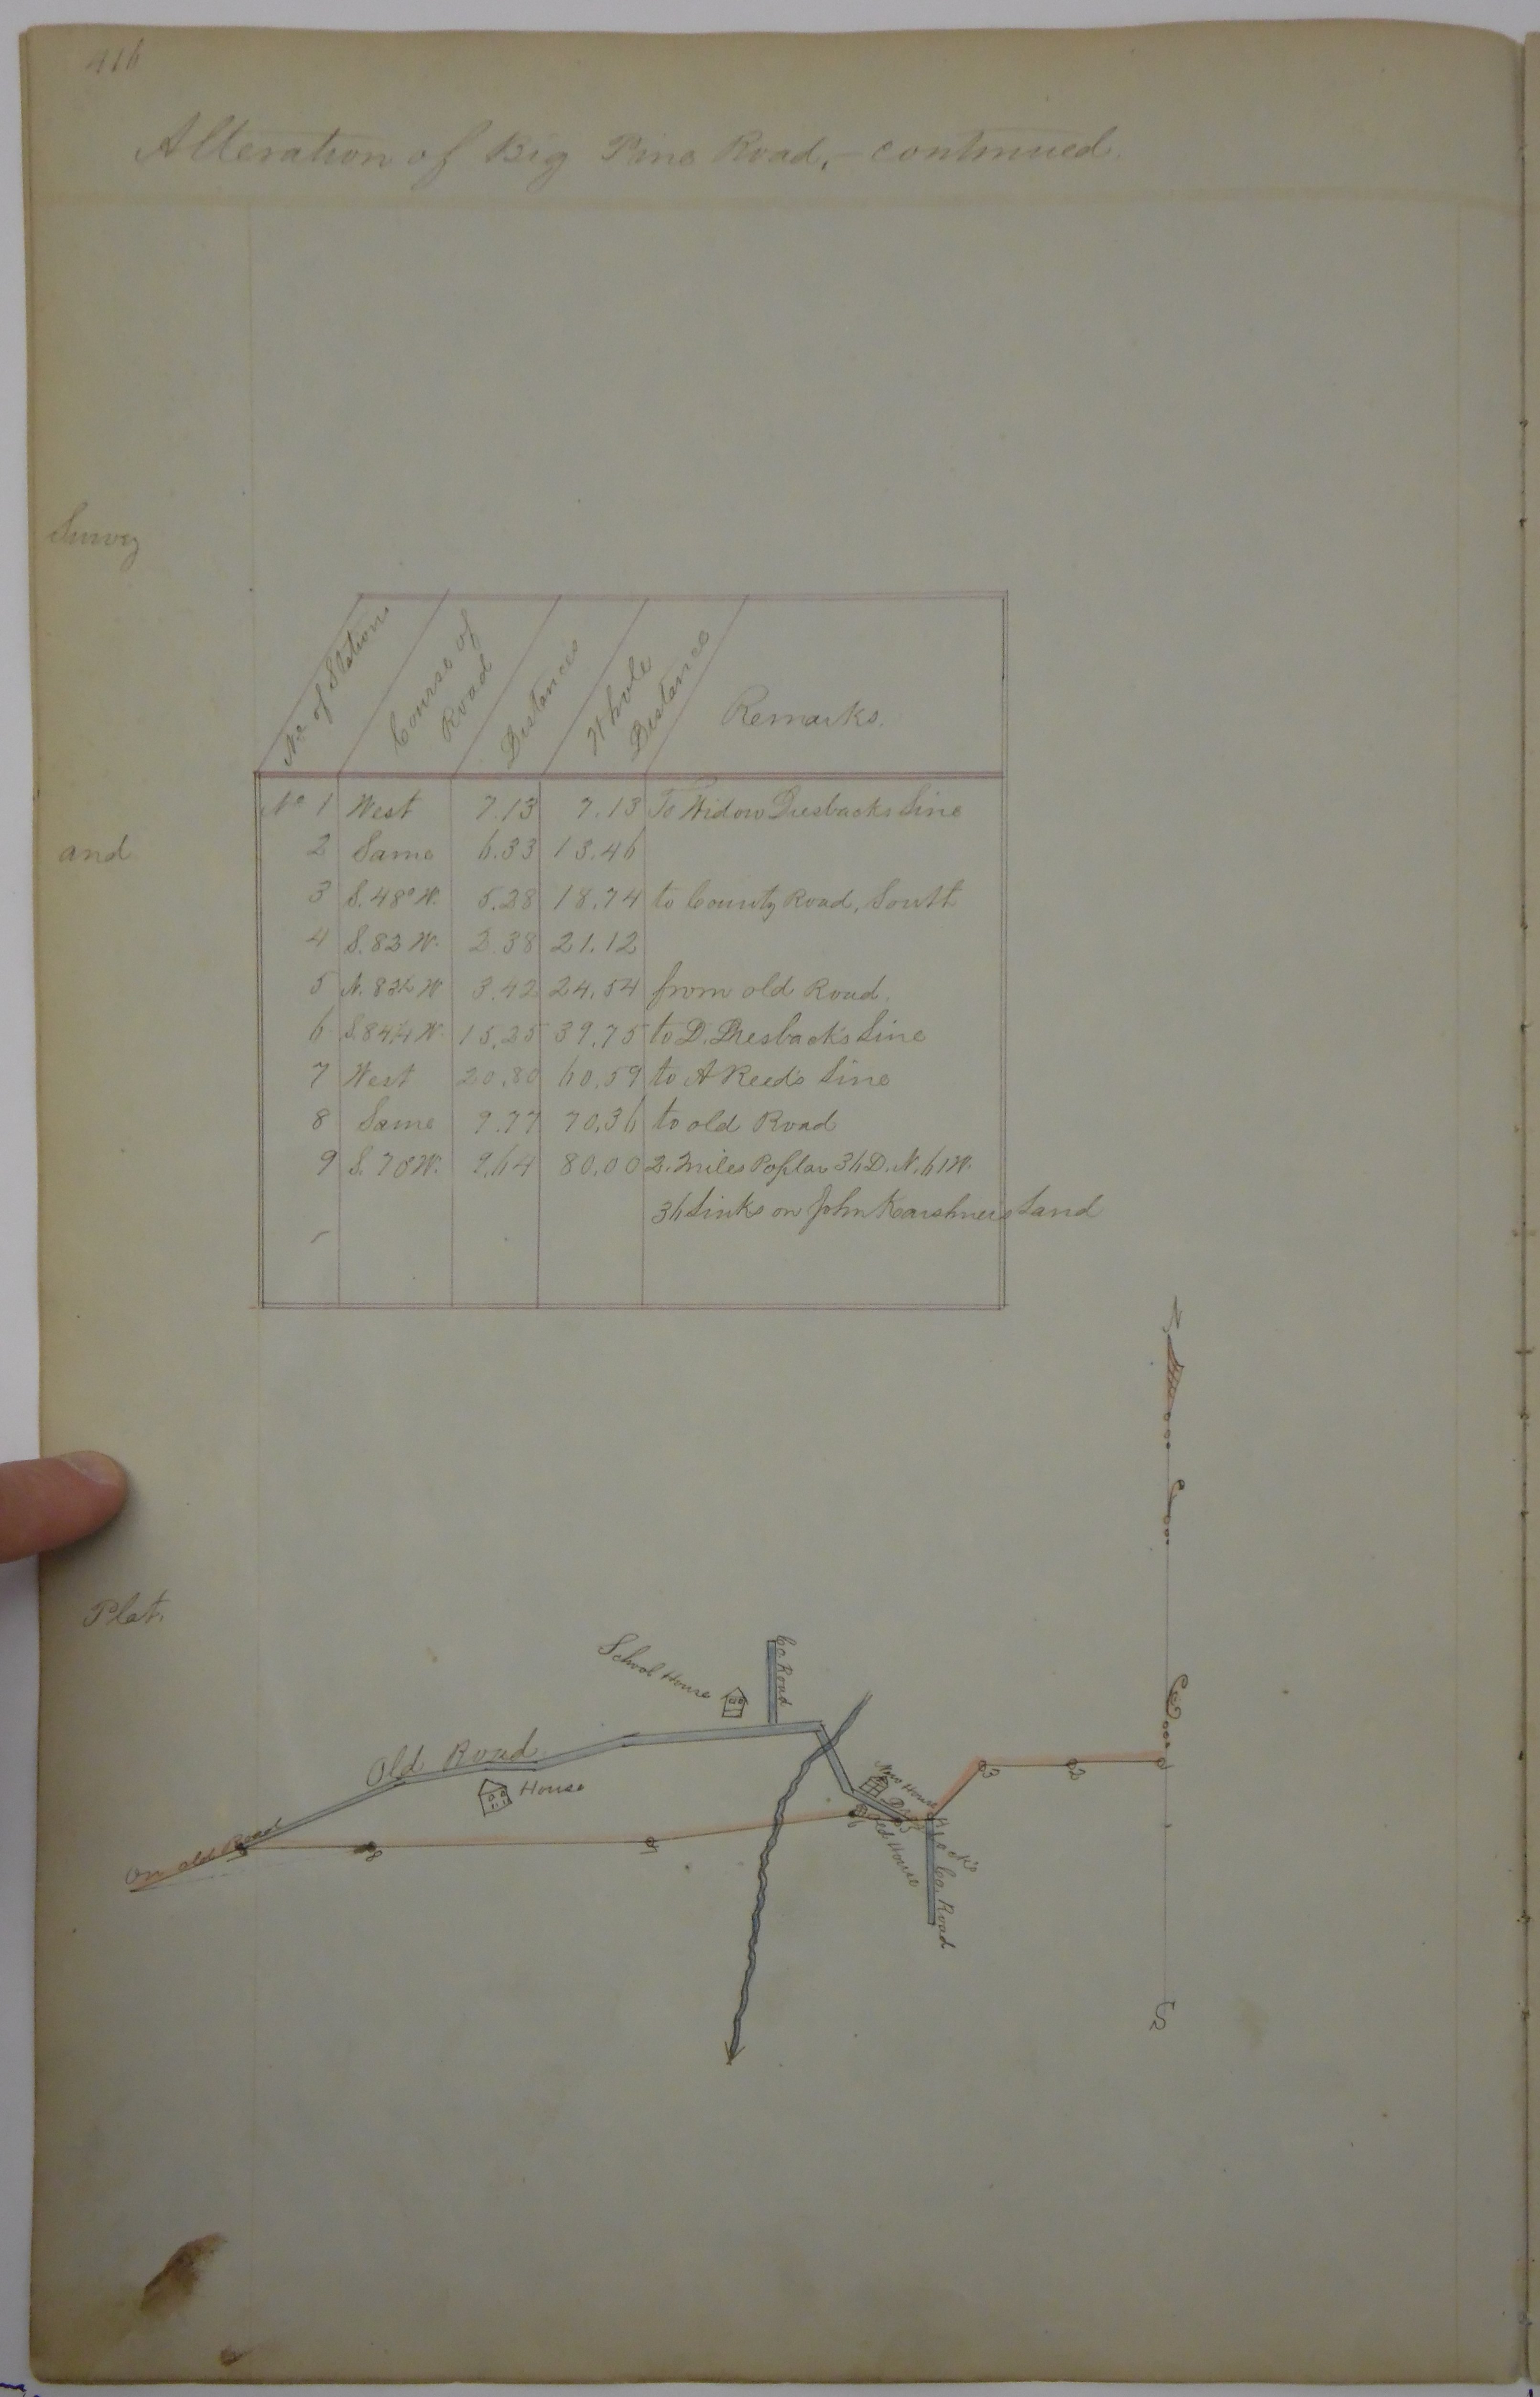 416
Alteration of Big Pine Road, – continued.
Survey
and
Plat.
No. of Stations
Course of Road
Distances
Whole Distance
Remarks.
No 1 West 7.13 7.13 To Widow Dresbacks Line
2 Same 6.33 13.46
3 S. 48° W. 5.28 18.74 to County Road, South
4 S. 82 W. 2.38 21.12
5 N. 83½ W 3.42 24.54 from old Road.
6 S. 84¼ W. 15.25 39.75 to D. Dresback's Line
7 West 20.80 60.59 to A Reed's Line
8 Same 9.77 70.36 to old Road
9 S. 70 W. 9.64 80.00 2. Miles Poplar 36 D. N. 61 W.
36 Links on John Karshner's Land
N
School House
Co Road
Old Road
House
New House
Old House
Co. Road
On old Road
2
3
6
7
8
S